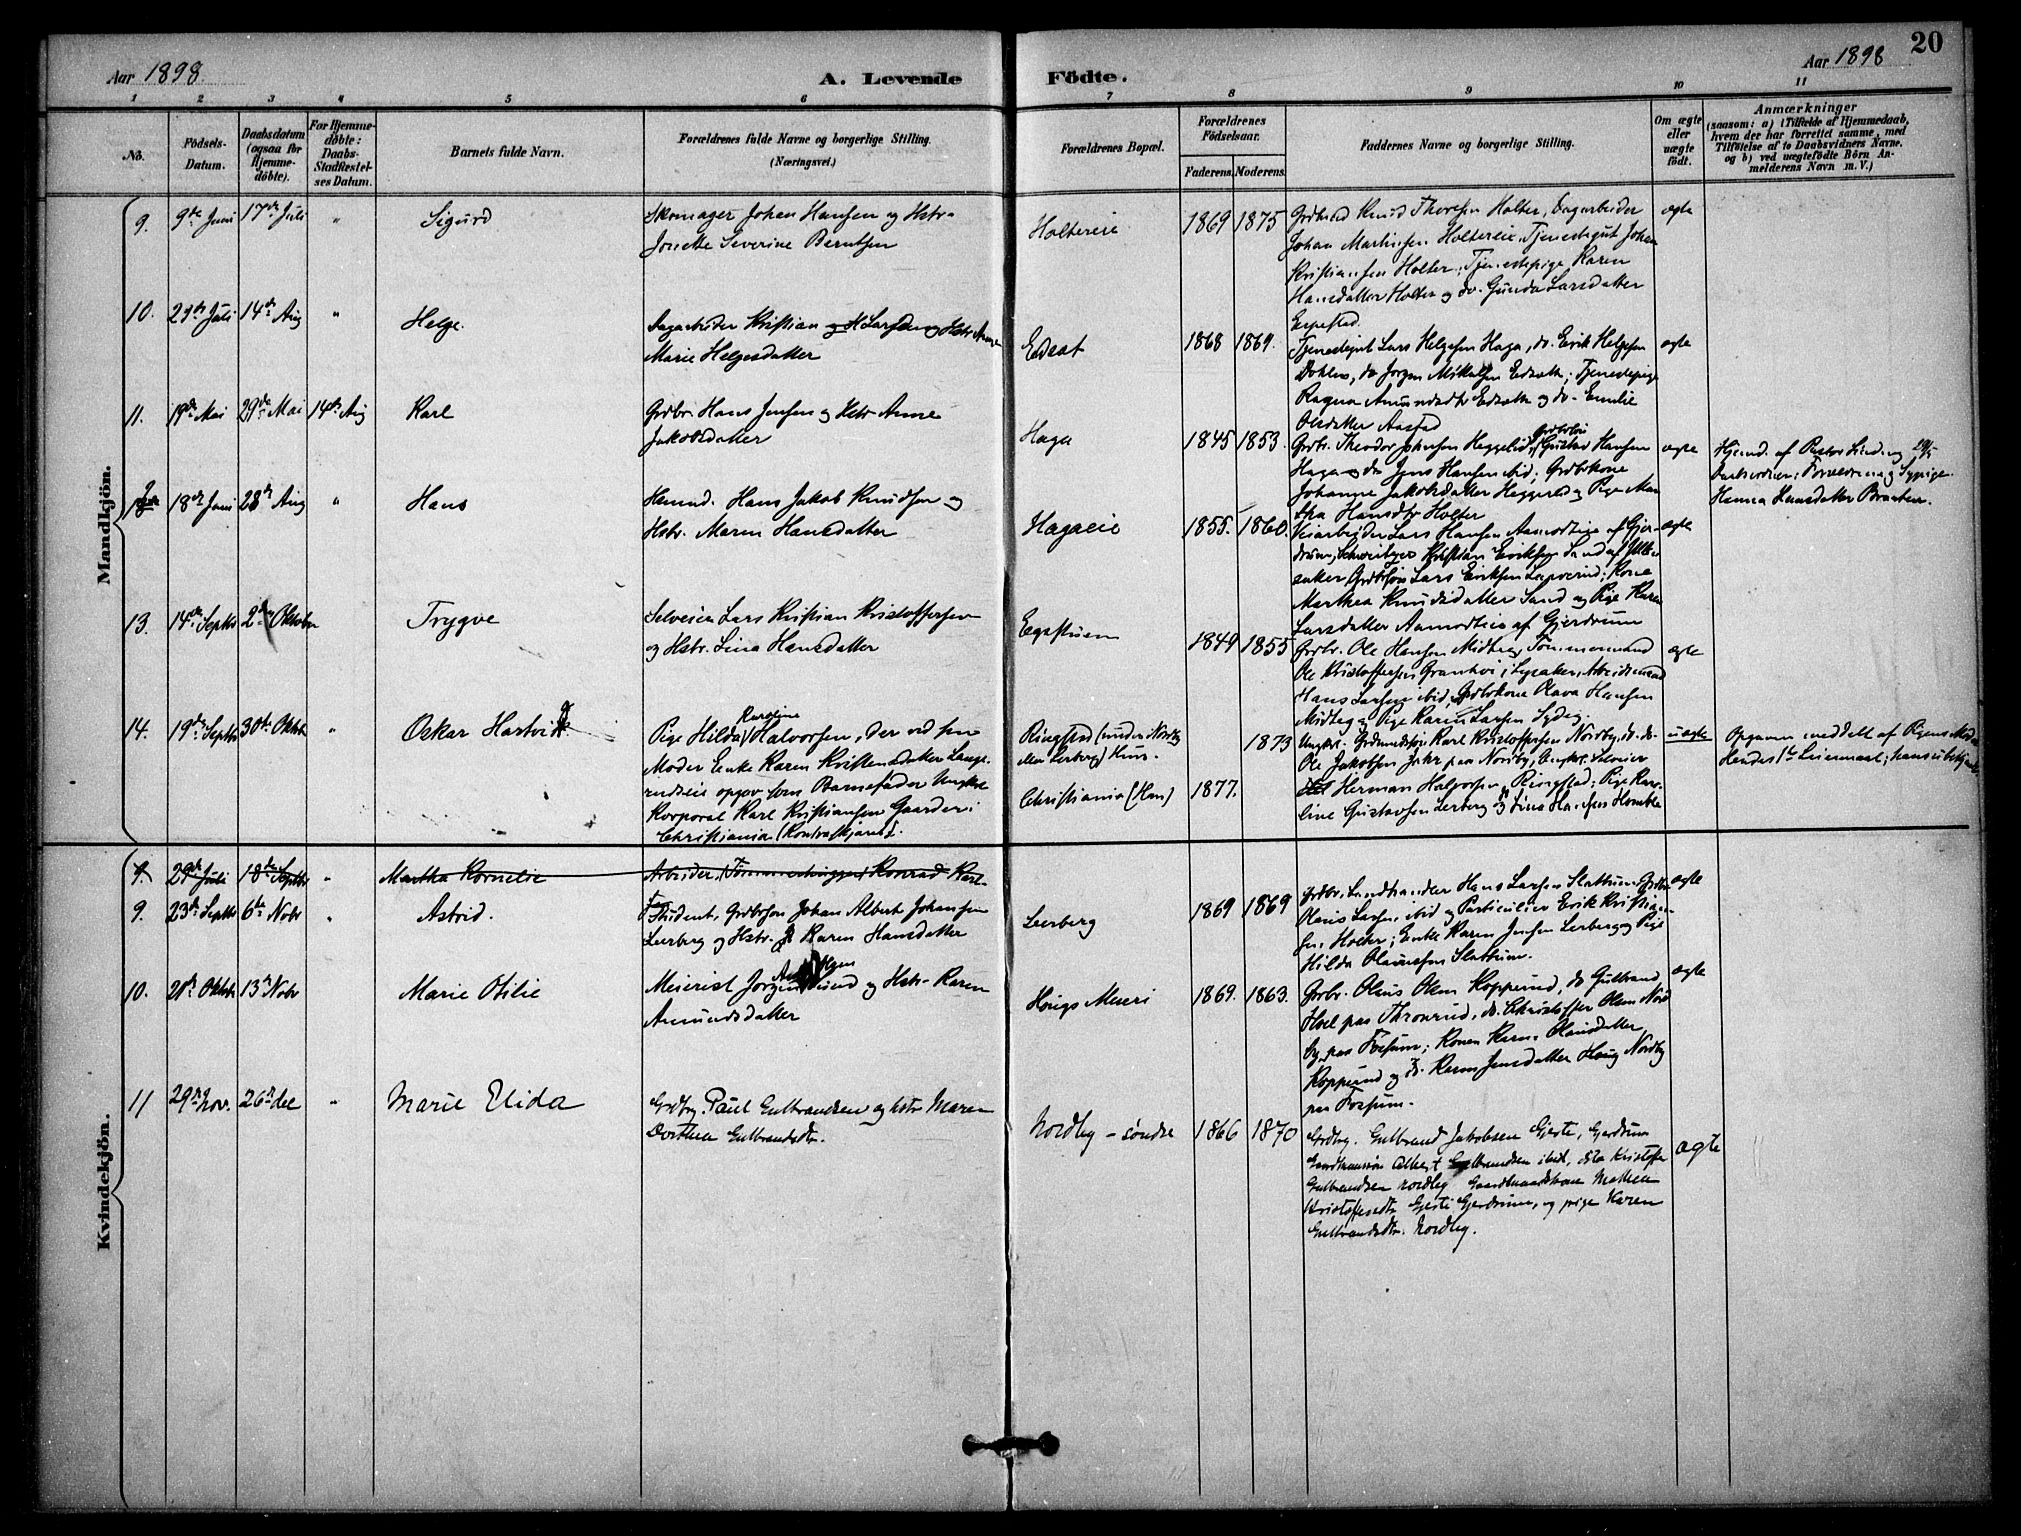 20
Aar 1898.
A. Levende
Födte.
Aar 1898
1 2 3 4 5 6 7 8 9 10 11
No.
Födsels-
Datum.
Daabsdatum
(ogsaa for
Hjemme-
döbte).
For Hjemme-
döbte:
Daabs-
Stadfæstel-
ses Datum.
Barnets fulde Navn.
Forældrenes fulde Navne og borgerlige Stilling.
(Næringsvei.)
Forældrenes Bopæl.
Forældrenes
Födselsaar.
Faderens.
Moderens.
Faddernes Navne og borgerlige Stilling.
Om ægte
eller
uægte
födt.
Anmærkninger
(saasom: a) i Tilfælde af Hjemmedaab,
hvem der har forrettet samme, med
Tilföielse af to Daabsvidners Navne.
og b) ved uægtefödte Börn An-
melderens Navn m. V.)
Mandkjön.
9. 9de Juni 17de Juli " Sigurd
Skomager Johan Hansen og Hstr.
Jonette Severine Berntsen
Holtereie 1869 1875
Knud Thoresen Holter, Dagarbeider
Johan Martinsen Holtereie, Tjenestegut Johan
Kristiansen Holter; Tjenestepige Karen
Hansdatter Holter og do. Gunda Larsdatter
ægte
10. 29de Juli 14de Aug " Helge.
Kristian Larsen og Hstr. Anne
Marie Helgesdatter
Edsat 1868 1869.
Tjenestegut Lars Helgesen Haga, do. Erik Helgesen
do Jørgen Mikelsen Edsath; Tjenestepige
Ragna Amundsdtr Edsath og do. Emilie
Olsdatter Aastad
ægte
11. 19de Mai 29de Mai 14de Aug Karl
Grdbr. Hans Jensen og Hstr. Anne
Jakobsdatter
Haga 1845 1853.
Grdbr. Theodor Johnsen Gustav Hansen
Haga og do Jens Hansen ibid; Grdbrkone
Johanne Jakobsdatter og Pige
Hansdtr Holter
ægte
Hjemd. af Pastor Lind 29/5
og Sypige
Hanna Hansdatter Braaten.
12 18de Juni 28de Aug " Hans
Husmd. Hans Jakob Knudsen og
Hstr. Maren Hansdatter
Hagaeie 1855. 1860.
Veiarbeider Lars Hansen af Gjer-
drum, Kristian Eriksen Sand af Ulle-
ensaker, Lars Eriksen Kone
Marthea Knudsdatter Sand og Pige Karen
Larsdatter af Gjerdrum
ægte
13. 14de Septbr 2den Oktober Trygve
Selveier Lars Kristian Kristoffersen
og Hstr. Lina Hansdatter
Egastuen 1849 1855
Grdbr. Ole Hansen Tømmermand
Ole Kristoffersen
Hans Larsen ibid, Grdbrkone Olava Hansen
og Pige Karen Larsen
ægte
14. 19de Septbr 30te Oktbr " Oskar Hartvig
Karoline
Pige Hilda Halvorsen, der ved sin
Moder Enke Karen Kristensdatter Lange-
rudseie opgav som Barnefader Ungkar
Korporal Karl Kristiansen Gaarder i
Christiania (Kontraskjæret).
Ringstad (under Nordby
Lerberg) Hun.
Christiania (Han)
1873
1877.
Ungkr. Karl Kristoffersen Nordby, do. do.
Ole Jakobsen Jahr paa Nordby, Ungkr. Selveier
Herman Halvorsen Ringstad; Pige Karo-
line Gustavsen Lerberg og Lina Hansen
uægte
Opgaven meddelt af Pigens Moder
Hendes 1ste Leiermaal; hans ubekjendt
Kvindekjön.
9. 29de Juli 18de Septbr " Martha Kornelie
Arbeider (Tømmerhugger) Konrad Karl-
9. 23de Septbr 6te Nobr " Astrid.
Student, Grdbrsøn Johan Albert Johansen
Lerberg og Hstr. Karen Hansdatter
Leerberg 1869 1869
Grdbr. Landhandler Hans Larsen Slattum,
Olaus Larsen ibid og Particulier Erik Kristian-
sen Holter; Enke Karen Jensen Lerberg og Pige
Hilda Olausen Slattum.
ægte
10. 21de Oktbr 13de Nobr Marie Otilie
Meierist Jørgen Lund og Hstr. Karen
Amundsdatter
Hougs Meieri 1869. 1863.
Grdbr. Olaus Olsen Kopperud, do Gulbrand
Hoel paa Thronrud, do. Christoffer Olsen Nord
by paa Fossum; Konen Karen Olausdatter
Kopperud og do. Karen Jensdatter Houg Nordby
paa Fossum.
ægte
11 29de Nov. 26de dec " Marie Elida
Grdbg. Paul Gulbrandsen og hstr. Maren
Dorthea Gulbrandsdtr.
Nordby – søndre 1866 1870
Grdbg. Gulbrand Jakobsen Gjeste, Gjerdrum
Albert Gulbrandsen ibid, dito Kristoffer
Gulbrandsen Nordby Gaardmandskone Mathea
Kristoffersdtr. Gjeste Gjerdrum, og pige Karen
Gulbrandsdtr. Nordby.
ægte